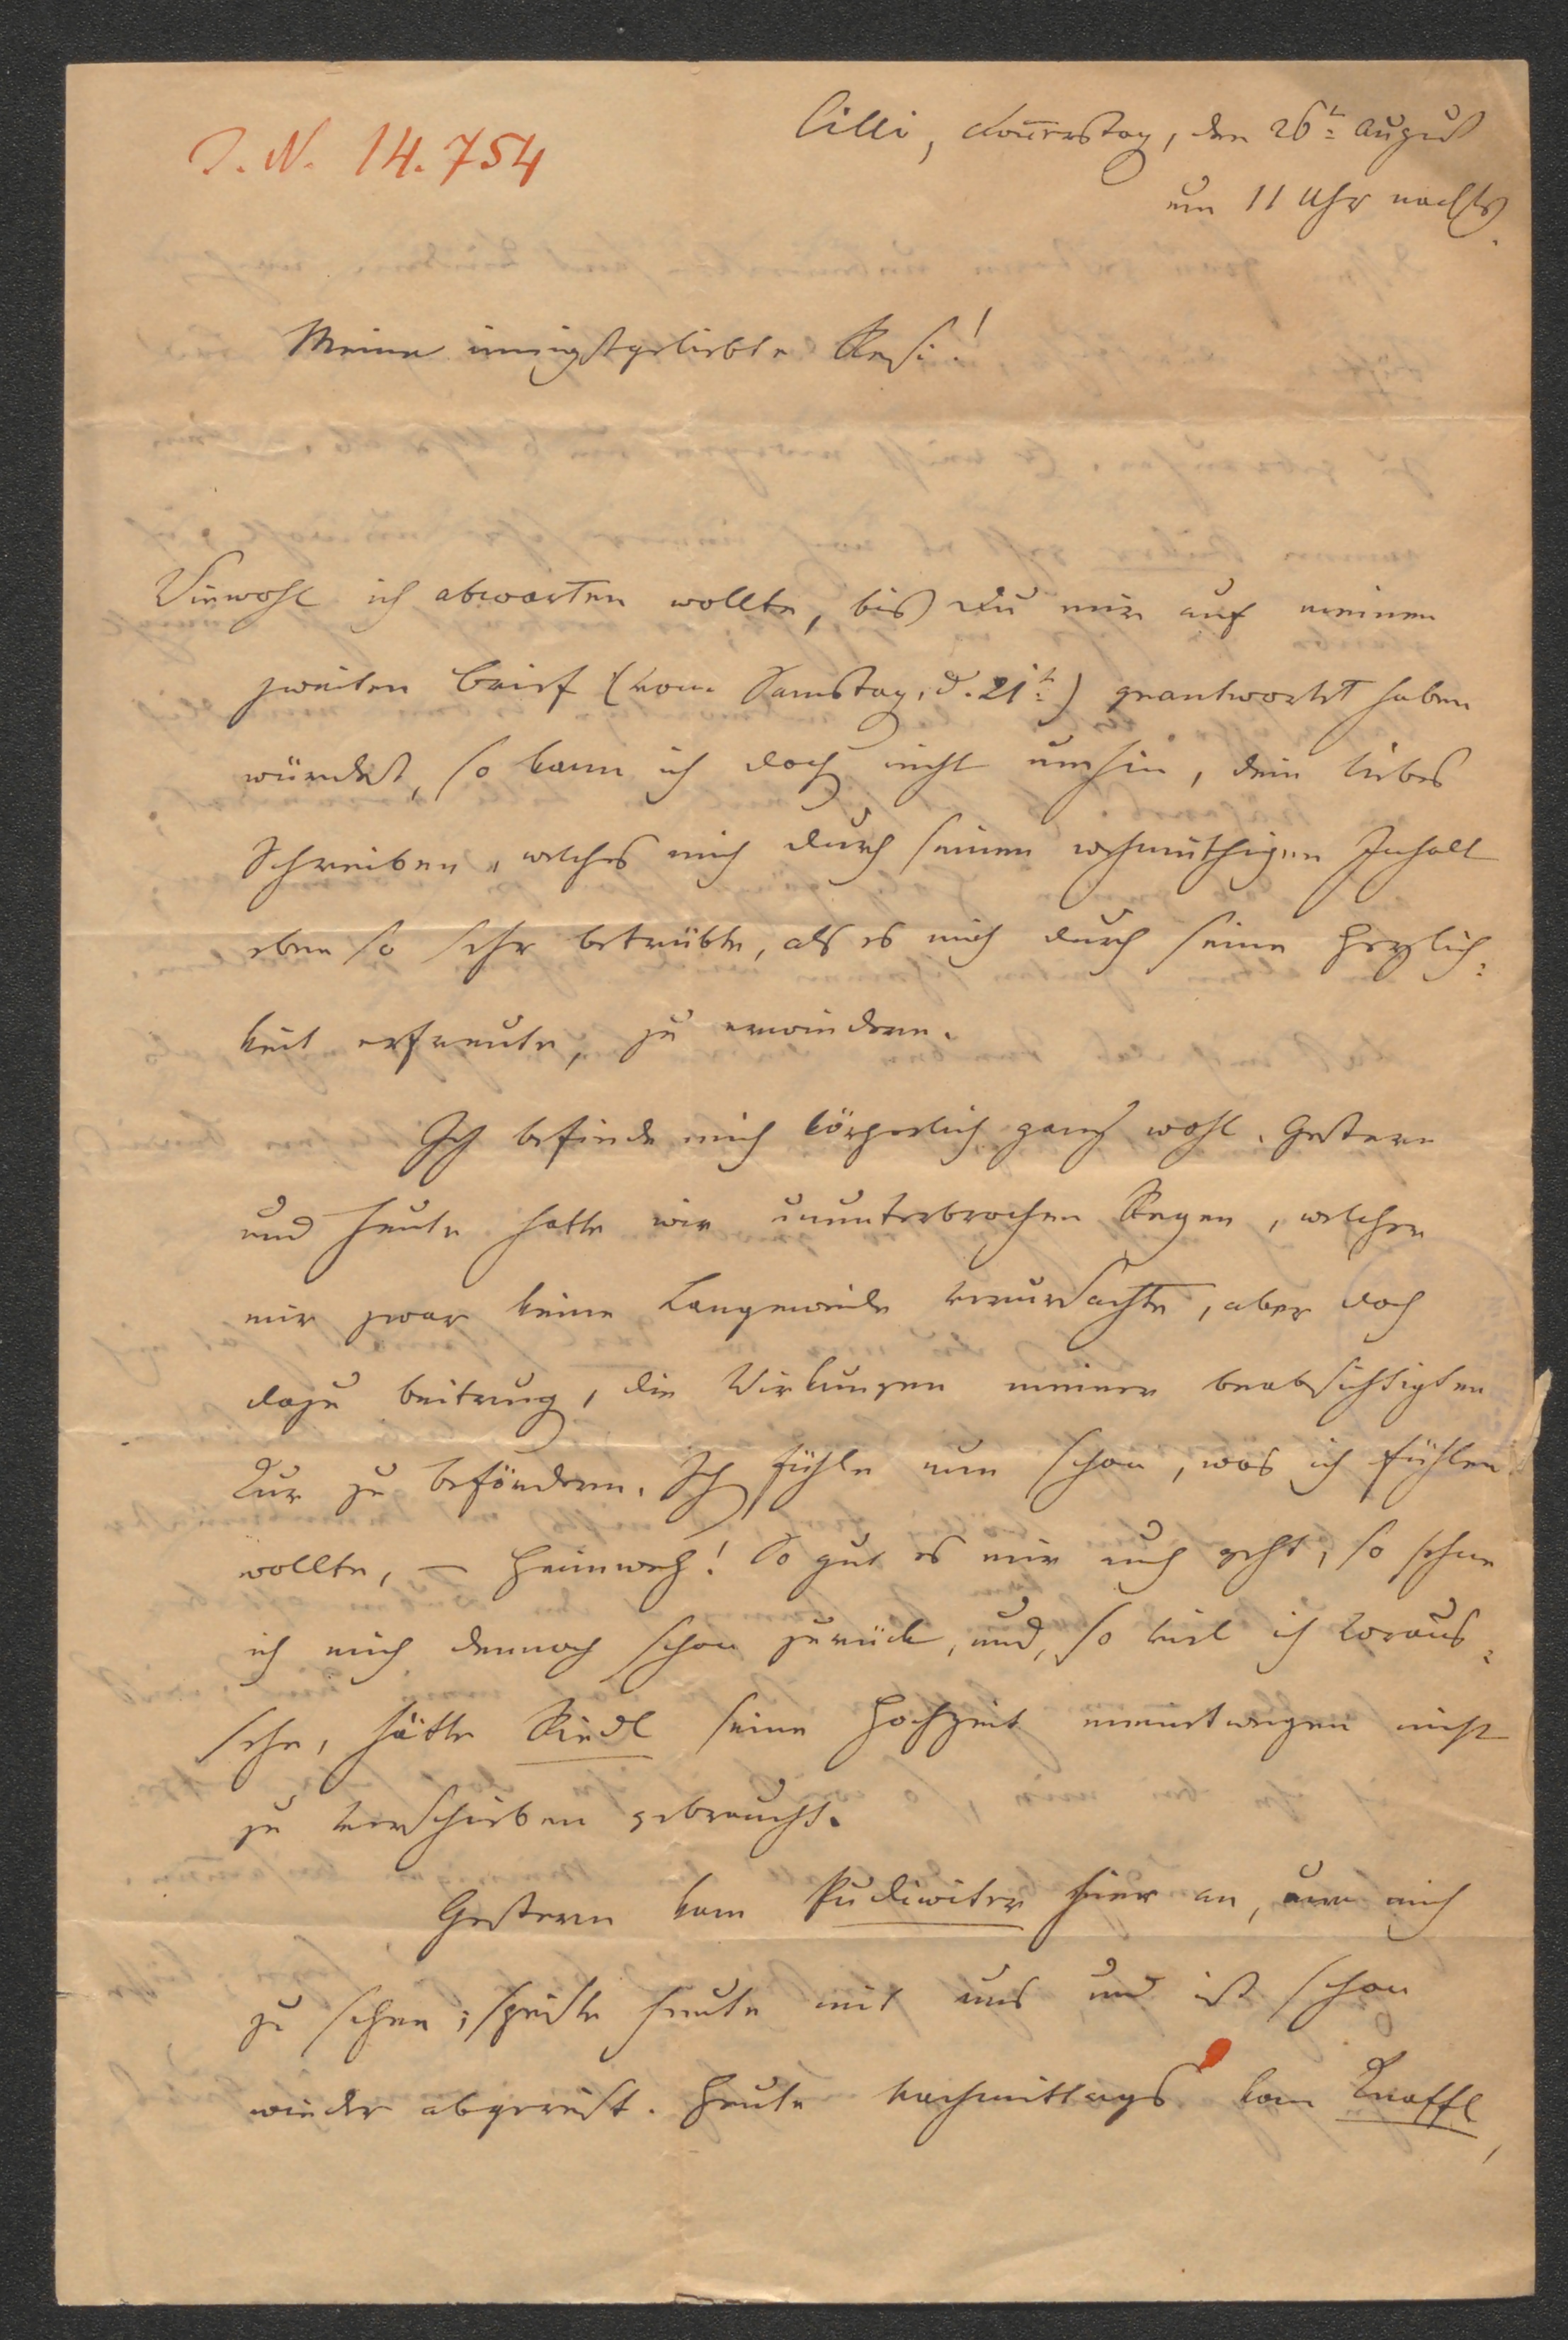 J. N. 14.754
Cilli, Donnerstag, den 26t= August
um 11 Uhr nachts.
Meine innigstgeliebte Resi!
Wiewohl ich abwarten wollte, bis Du mir auf meinen
zweiten Brief (vom Samstag, d. 21t=) geantwortet haben
würdest, so kann ich doch nicht umhin, dein liebes
Schreiben, welches mich durch seinen wehmüthigen Inhalt
eben so sehr betrübte, als es mich durch seine Herzlich=
keit erfreute, zu erwiedern.
Ich befinde mich körperlich ganz wohl. Gestern
und heute hatte wir ununterbrochen Regen, welcher
mir zwar keine Langeweile verursachte, aber doch
dazu beitrug, die Wirkungen meiner beabsichtigten
Kur zu befördern. Ich fühle nun schon, was ich fühlen
wollte, – Heimweh! So gut es mir auch geht, so sehne
ich mich dennoch schon zurück, und, so viel ich voraus=
sehe, hätte Riedl seine Hochzeit meinetwegen nicht
zu verschieben gebraucht.
Gestern kam Pudiwiter hier an, um mich
zu sehen; speiste heute mit uns und ist schon
wieder abgereist. Heute nachmittags kam Knaffl,